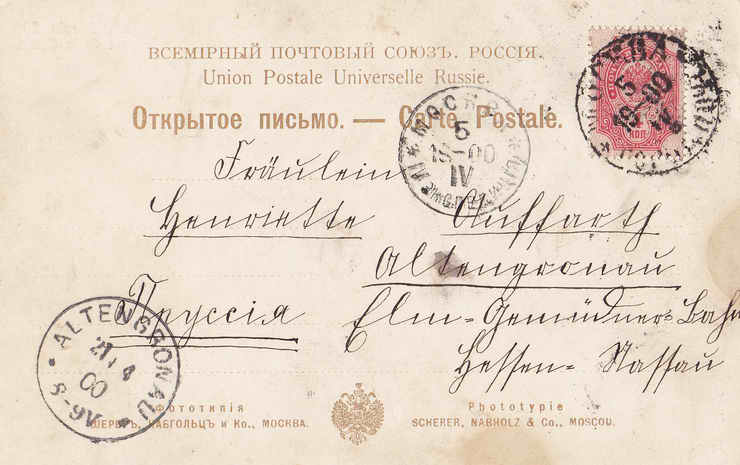 ВСЕМІРНЫЙ ПОЧТОВЫЙ СОЮЗЪ. РОССІЯ.
Union Postale Universelle Russie.
Открытое письмо. — Carte Postale.
МОСКВА
5
19-00
IV
МОСКВА
5
19-00
IV
КОП
Fräulein
Henriette Auffarth
Altengronau
Пруссія Elm-Gemüdner-Bahn
Hessen-Nassau
ALTENGRONAU
00
8-9V
Фототипія
ШЕРЕРЪ, НАБГОЛЬЦЪ и Ко., МОСКВА.
Phototypie
SCHERER, NABHOLZ & Co., MOSCOU.